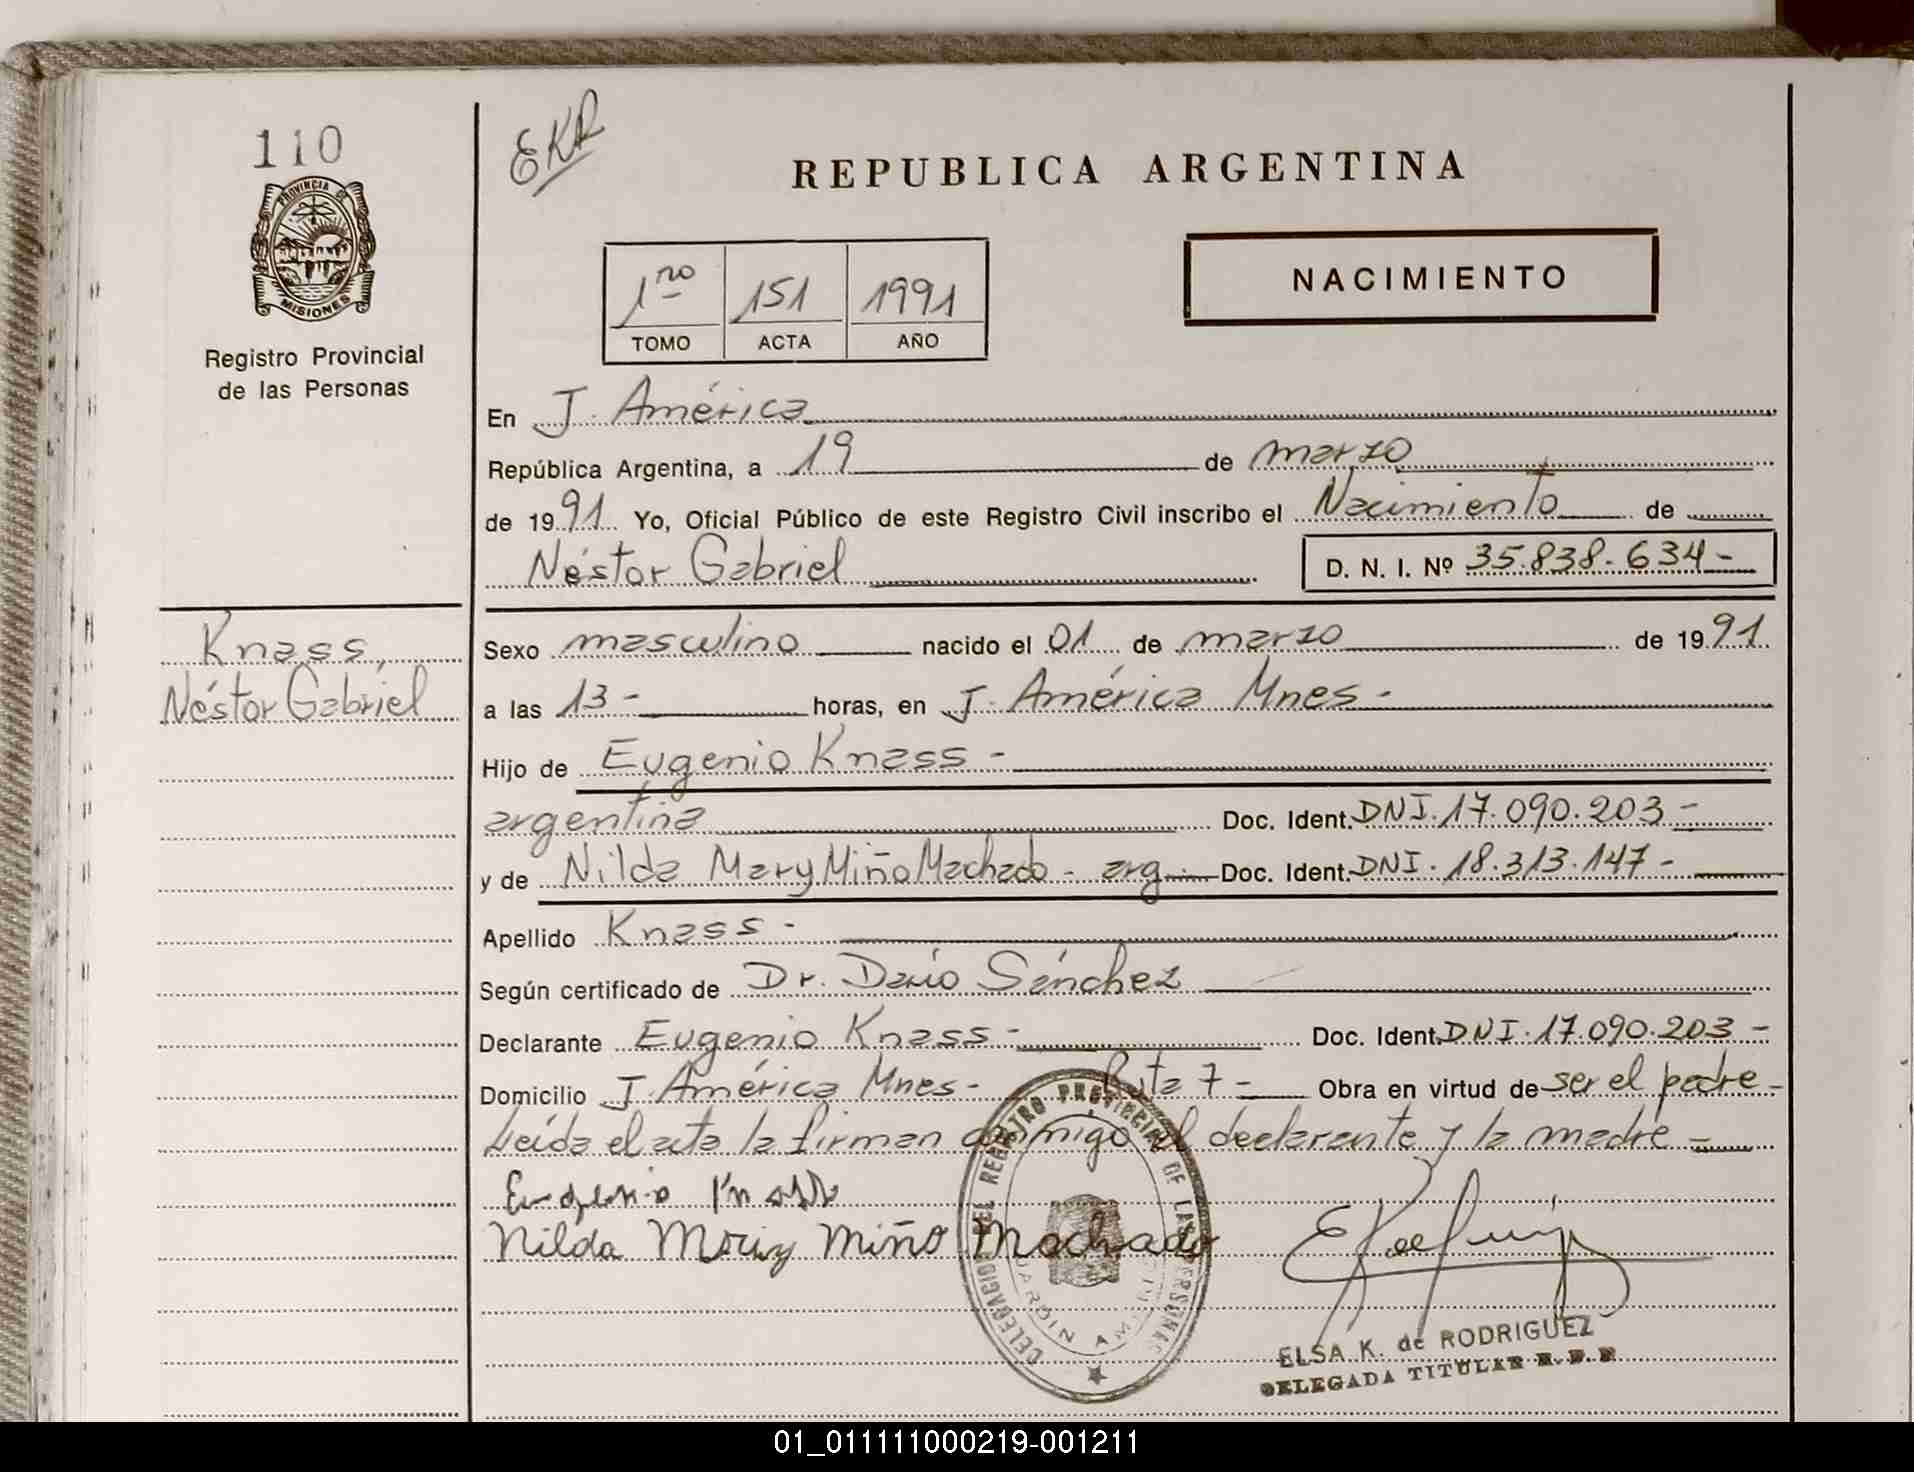 110
EKR
REPUBLICA ARGENTINA
PROVINCIA DE
MISIONES
Registro Provincial
de las Personas
1ro 151 1991
TOMO ACTA AÑO
NACIMIENTO
En J. América
República Argentina, a 19 de marzo
de 1991 Yo, Oficial Público de este Registro Civil inscribo el Nacimiento de
Néstor Gabriel D. N. I. Nº 35.838.634-
Knass,
Néstor Gabriel
Sexo masculino nacido el 01 de marzo de 1991
a las 13- horas, en J. América Mnes-
Hijo de Eugenio Knass-
argentina Doc. Ident. DNI. 17.090.203-
y de Nilda Mary Miño Machado - arg Doc. Ident. DNI. 18.313.147-
Apellido Knass-
Según certificado de Dr. Darío Sánchez
Declarante Eugenio Knass- Doc. Ident. DNI. 17.090.203-
Domicilio J. América Mnes- Ruta 7- Obra en virtud de ser el padre-
Leída el acta la firman conmigo el declarante y la madre-
Eugenio Knass
Nilda Mary Miño Machado
DELEGACION DEL REGISTRO PROVINCIAL DE LAS PERSONAS
JARDIN AMERICA
ELSA K. de RODRIGUEZ
DELEGADA TITULAR R. P. P.
01_011111000219-001211